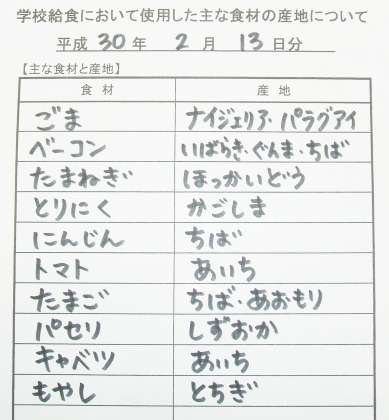 学校給食において使用した主な食材の産地について
平成 30 年 2 月 13 日分
【主な食材と産地】
食材 産地
ごま ナイジェリア・パラグアイ
ベーコン いばらき・ぐんま・ちば
たまねぎ ほっかいどう
とりにく かごしま
にんじん ちば
トマト あいち
たまご ちば・あおもり
パセリ しずおか
キャベツ あいち
もやし とちぎ